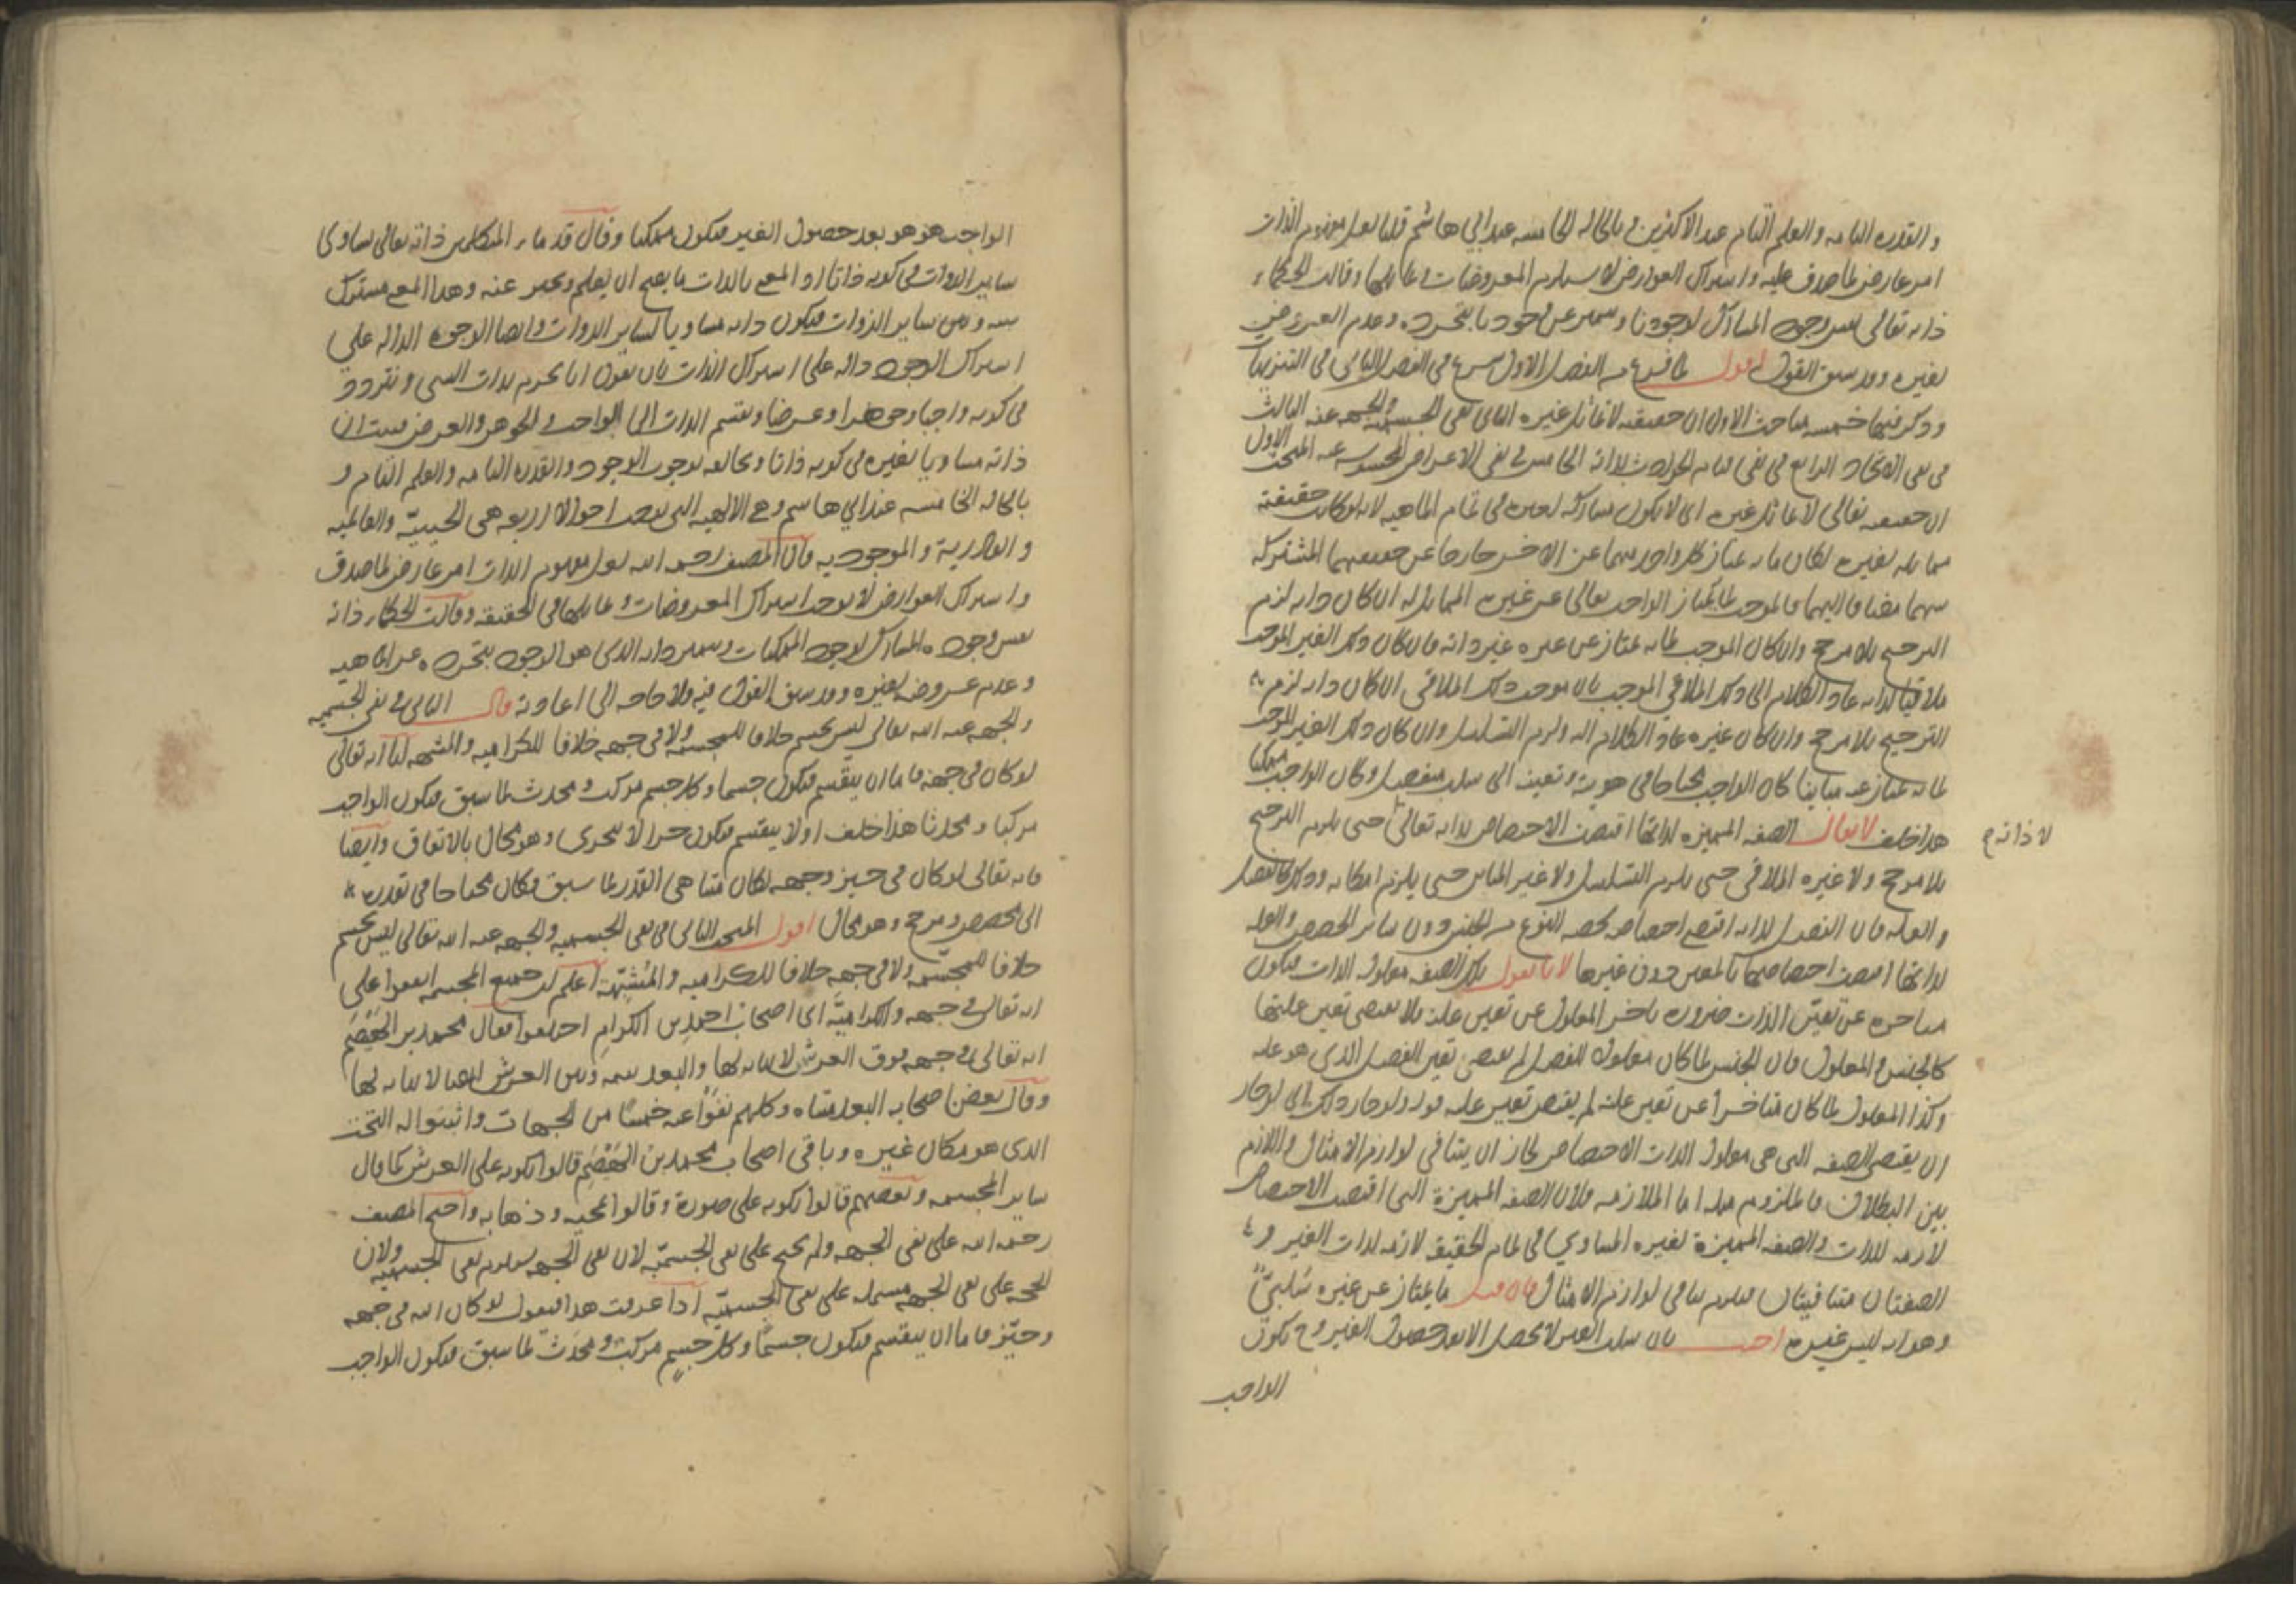 والقدرة التامة والعلم التام عند الاكثرين وبالحالة الخامسة عند ابي هاشم قلنا لعل مفهوم الذات
امر عارض لما صدق عليه واشتراك العوارض لا يستلزم المعروضات وتماثلها وقالت الحكماء
ذاته تعالى نفس وجوده المشارك لوجودنا ويتميز عن وجودنا بتجرده وعدم العروض
لغيره وقد سبق القول اقول لما فرغ من الفصل الاول شرع في الفصل الثاني في التنزيهات
وذكر فيها خمسة مباحث الاول ان حقيقته لا تماثل غيره الثاني في نفي الجسمية والجهة عنه الثالث
في نفي الاتحاد الرابع في نفي قيام الحوادث بذاته الخامس في نفي الاعراض المحسوسة عنه المبحث الاول
ان حقيقته تعالى لا تماثل غيره اي لا يكون مشاركه لغيره في تمام الماهية لانه لو كانت حقيقته
مماثلة لغيره لكان ما به يمتاز كل واحد منهما عن الاخر خارجا عن حقيقتهما المشتركة
بينهما مضافا اليهما فالموجب لما يمتاز الواجب تعالى عن غيره المماثل له ان كان ذاته لزم
الترجيح بلا مرجح وان كان الموجب لما به يمتاز عن غيره غير ذاته فان كان ذلك الغير الموجب
ملاقيا لذاته عاد الكلام الى ذلك الملاقي الموجب بان موجب ذلك الملاقي ان كان ذاته لزم
الترجيح بلا مرجح وان كان غيره عاد الكلام اليه ولزم التسلسل وان كان ذلك الغير الموجب
لما به يمتاز عنه مباينا كان الواجب محتاجا في هويته وتعينه الى سبب منفصل وكان الواجب ممكنا
هذا خلف لا يقال الصفة المميزة لذاتها اقتضت الاختصاص بذاته تعالى حتى يلزم الترجيح
لا ذاته
بلا مرجح ولا غيره الملاقي حتى يلزم التسلسل ولا غير المباين حتى يلزم امكانه وذلك كالفصل
والعلة فان الفصل لذاته اقتضى اختصاصه بحصة النوع من الجنس دون سائر الحصص والعلة
لذاتها اقتضت اختصاصها بالمعين دون غيرها لانا نقول تلك الصفة معلول الذات فيكون
متاخرة عن تعين الذات ضرورة تاخر المعلول عن تعين علته فلا يقتضي تعين علتها
كالجنس والمعلول فان الجنس لما كان معلولا للفصل لم يقتض تعين الفصل الذي هو علة
وكذا المعلول لما كان متاخرا عن تعين علته لم يقتض تعين علته قوله ولو جاز ذلك اي لو جاز
ان يقتضي الصفة التي هي معلول الذات الاختصاص لجاز ان يتنافى لوازم الامثال واللازم
بين البطلان فالملزوم مثله اما الملازمة فلان الصفة المميزة التي اقتضت الاختصاص
لازمة للذات والصفة المميزة لغيره المساوي في تمام الحقيقة لازمة لذات الغير و
الصفتان متنافيتان فيلزم تنافي لوازم الامثال فان قيل ما يمتاز عن غيره سلبيّ
وهو انه ليس غيره اجيب بان سلب الغير لا يحصل الا بعد حصول الغير وح تكون
الواجب
الواجب هو هو بعد حصول الغير فيكون ممكنا وقال قدماء المتكلمين ذاته تعالى يساوي
ساير الذوات في كونه ذاتا اذ المعني بالذات ما يصح ان يعلم ويخبر عنه وهذا المعنى مشترك
بينه وبين ساير الذوات فيكون ذاته مساويا لساير الذوات وايضا الوجوه الدالة على
اشتراك الوجود دالة على اشتراك الذات بان نقول انا نجزم بذات الشيء ونتردد
في كونه واجبا وجوهرا وعرضا ونقسم الذات الى الواجب والجوهر والعرض فثبت ان
ذاته مساويا لغيره في كونه ذاتا ويخالفه بوجوب الوجود والقدرة التامة والعلم التام و
بالحالة الخامسة عند ابي هاشم وهي الالهية التي توجب احوالا اربعة هي الحييّة والعالمية
والقادرية والموجودية قال المصنف رحمه الله لعل مفهوم الذات امر عارض لما صدق
واشتراك العوارض لا يوجب اشتراك المعروضات وتماثلها في الحقيقة وقالت الحكماء ذاته
نفس وجوده المشارك لوجود الممكنات ويتميز ذاته الذي هو الوجود بتجرده عن الماهية
وعدم عروضه لغيره وقد سبق القول فيه ولا حاجة الى اعادته قال الثاني في نفي الجسمية
والجهة عنه الله تعالى ليس بجسم خلافا للمجسمة ولا في جهة خلافا للكرامية والمشبهة لنا انه تعالى
لو كان في جهة فاما ان ينقسم فيكون جسما وكل جسم مركب ومحدث لما سبق فيكون الواجب
مركبا ومحدثا هذا خلف او لا ينقسم فيكون جزءا لا يتجزى وهو محال بالاتفاق وايضا
فانه تعالى لو كان في حيز وجهة لكان متناهي القدر لما سبق فكان محتاجا في تقدره
الى مخصص ومرجح وهو محال اقول المبحث الثاني في نفي الجسمية والجهة عنه الله تعالى ليس بجسم
خلافا للمجسّمة ولا في جهة خلافا للكرامية والمُشَبِّهة اعلم ان جميع المجسمة اتفقوا على
انه تعالى في جهة والكراميّة اي اصحاب احمد بن الكرام اختلفوا فقال محمد بن الهَيْصَم
انه تعالى في جهة فوق العرش لا نهاية لها والبعد بينه وبين العرش ايضا لا نهاية لها
وقال بعض اصحابه البعد متناه وكلهم نفوا عنه خمسًا من الجهات واثبتوا له التحت
الذي هو مكان غيره وباقي اصحاب محمد بن الهَيْصَم قالوا بكونه على العرش كما قال
ساير المجسمة وبعضهم قالوا بكونه على صورة وقالوا بمجيه وذهابه واحتج المصنف
رحمه الله على نفي الجهة ولم يحتج على نفي الجسميّة لان نفي الجهة يستلزم نفي الجسميّة ولان
الحجة على نفي الجهة مشتملة على نفي الجسميّة اذا عرفت هذا فنقول لو كان الله في جهة
وحيّز فاما ان ينقسم فيكون جسمًا وكل جسمٍ مركبٌ ومُحْدَثٌ لما سبق فيكون الواجب